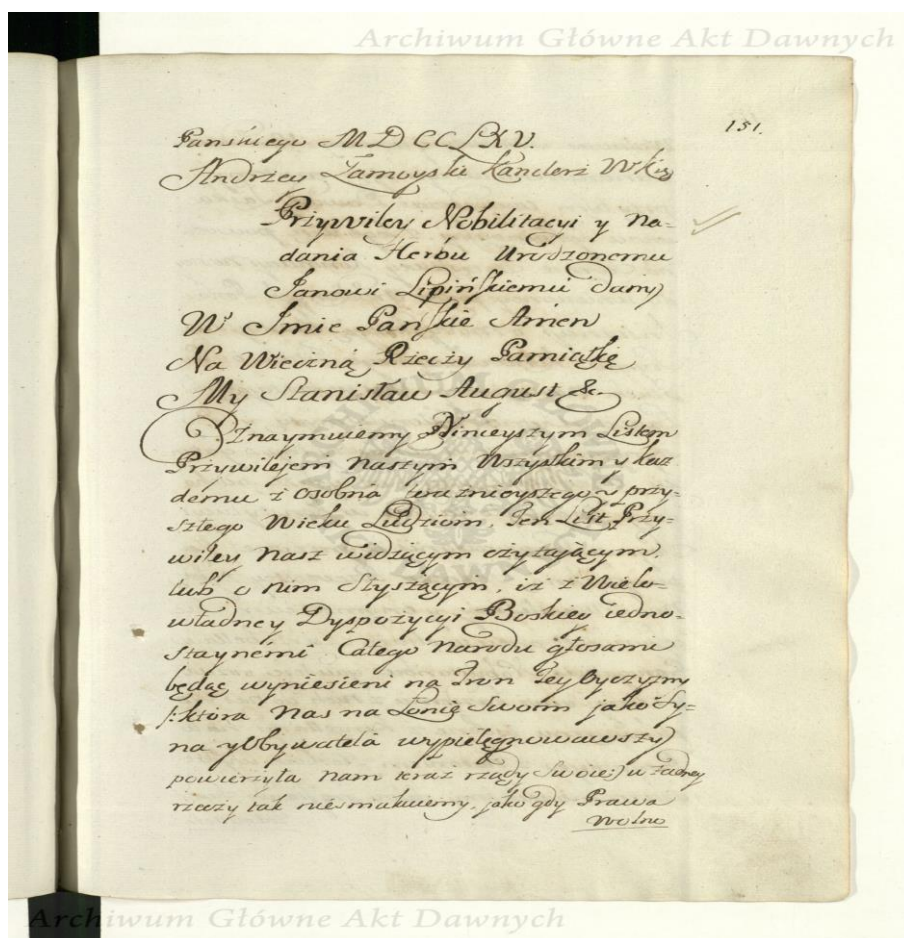 Archiwum Główne Akt Dawnych
151.
Panskiego MDCCLXV.
Andrzey Zamoyski Kanclerz WKor
Przywiley Nobilitacyi y Na=
dania Herbu Urodzonemu
Janowi Lipińskiemu dany
W Jmie Pańskie Amen
Na Wieczną Rzeczy Pamiątkę
My Stanisław August &c.
Oznaymuiemy Ninieyszym Listem
Przywilejem Naszym Wszystkim y każ
demu z osobna teraznieyszego y przy=
szłego Wieku Ludziom, Ten List Przy=
wiley Nasz widzącym czytającym,
lub o nim Słyszącym, iż z Wielo=
władney Dyspozycyi Boskiey iedno=
staynemi Całego Narodu głosami
będąc wyniesieni na Tron Tey Oyczyzny
/:która Nas na Łonie Swoim jako Sy=
na y Obywatela wypielęgnowawszy
powierzyła nam teraz rządy Swoie:/ w żadney
rzeczy tak niesmakuiemy, jako gdy Prawa
Wolno
Archiwum Główne Akt Dawnych